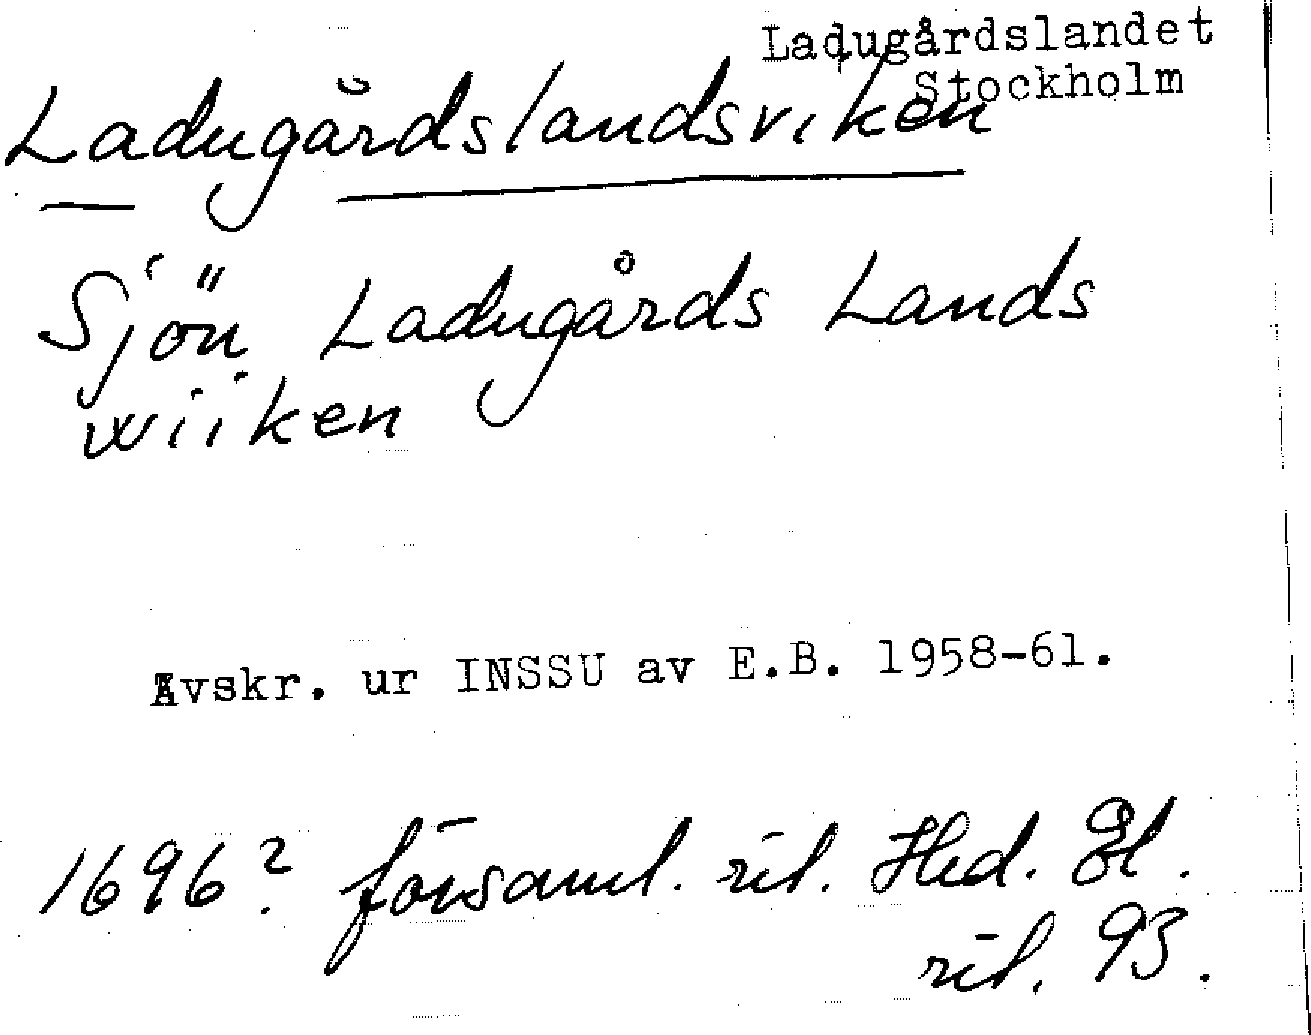 Ladugårdslandet
Stockholm
Ladugårdslandsviken
Sjön Ladugårds Lands
wiiken
Avskr. ur INSSU av E.B. 1958-61.
1696? församl. rit. Hed. Öl.
rit. 93.